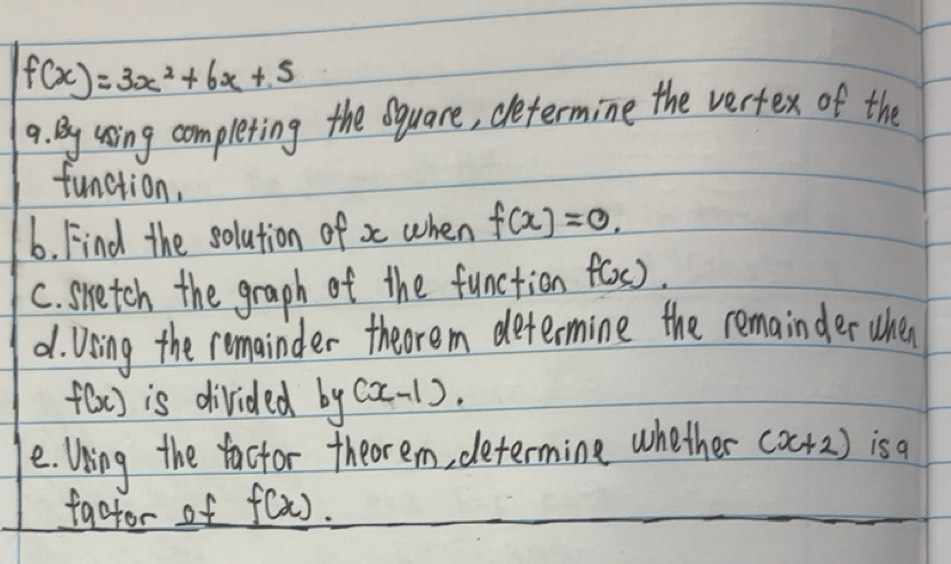 f(x)=3x²+6x+5
a. By using completing the square, determine the vertex of the
function.
b. Find the solution of x when f(x)=0.
c. sketch the graph of the function f(x).
d. Using the remainder theorem determine the remainder when
f(x) is divided by (x-1).
e. Using the factor theorem, determine whether (x+2) is a
factor of f(x).